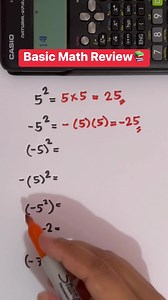 CASIO
Basic Math Review 📚
5² = 5 × 5 = 25
-5² = -(5)(5) = -25
(-5)² =
-(5)² =
(-5²) =
-2 =
(-